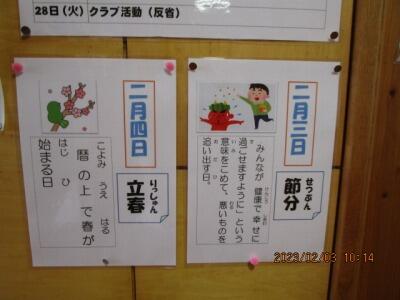 28日（火）クラブ活動（反省）
二月三日
せつぶん
節分
みんなが 健康で幸せに
過ごせますように」という
意味をこめて、悪いものを
追い出す日。
二月四日
りっしゅん
立春
こよみ うえ はる
暦の上で春が
はじ ひ
始まる日
2023/02/03 10:14